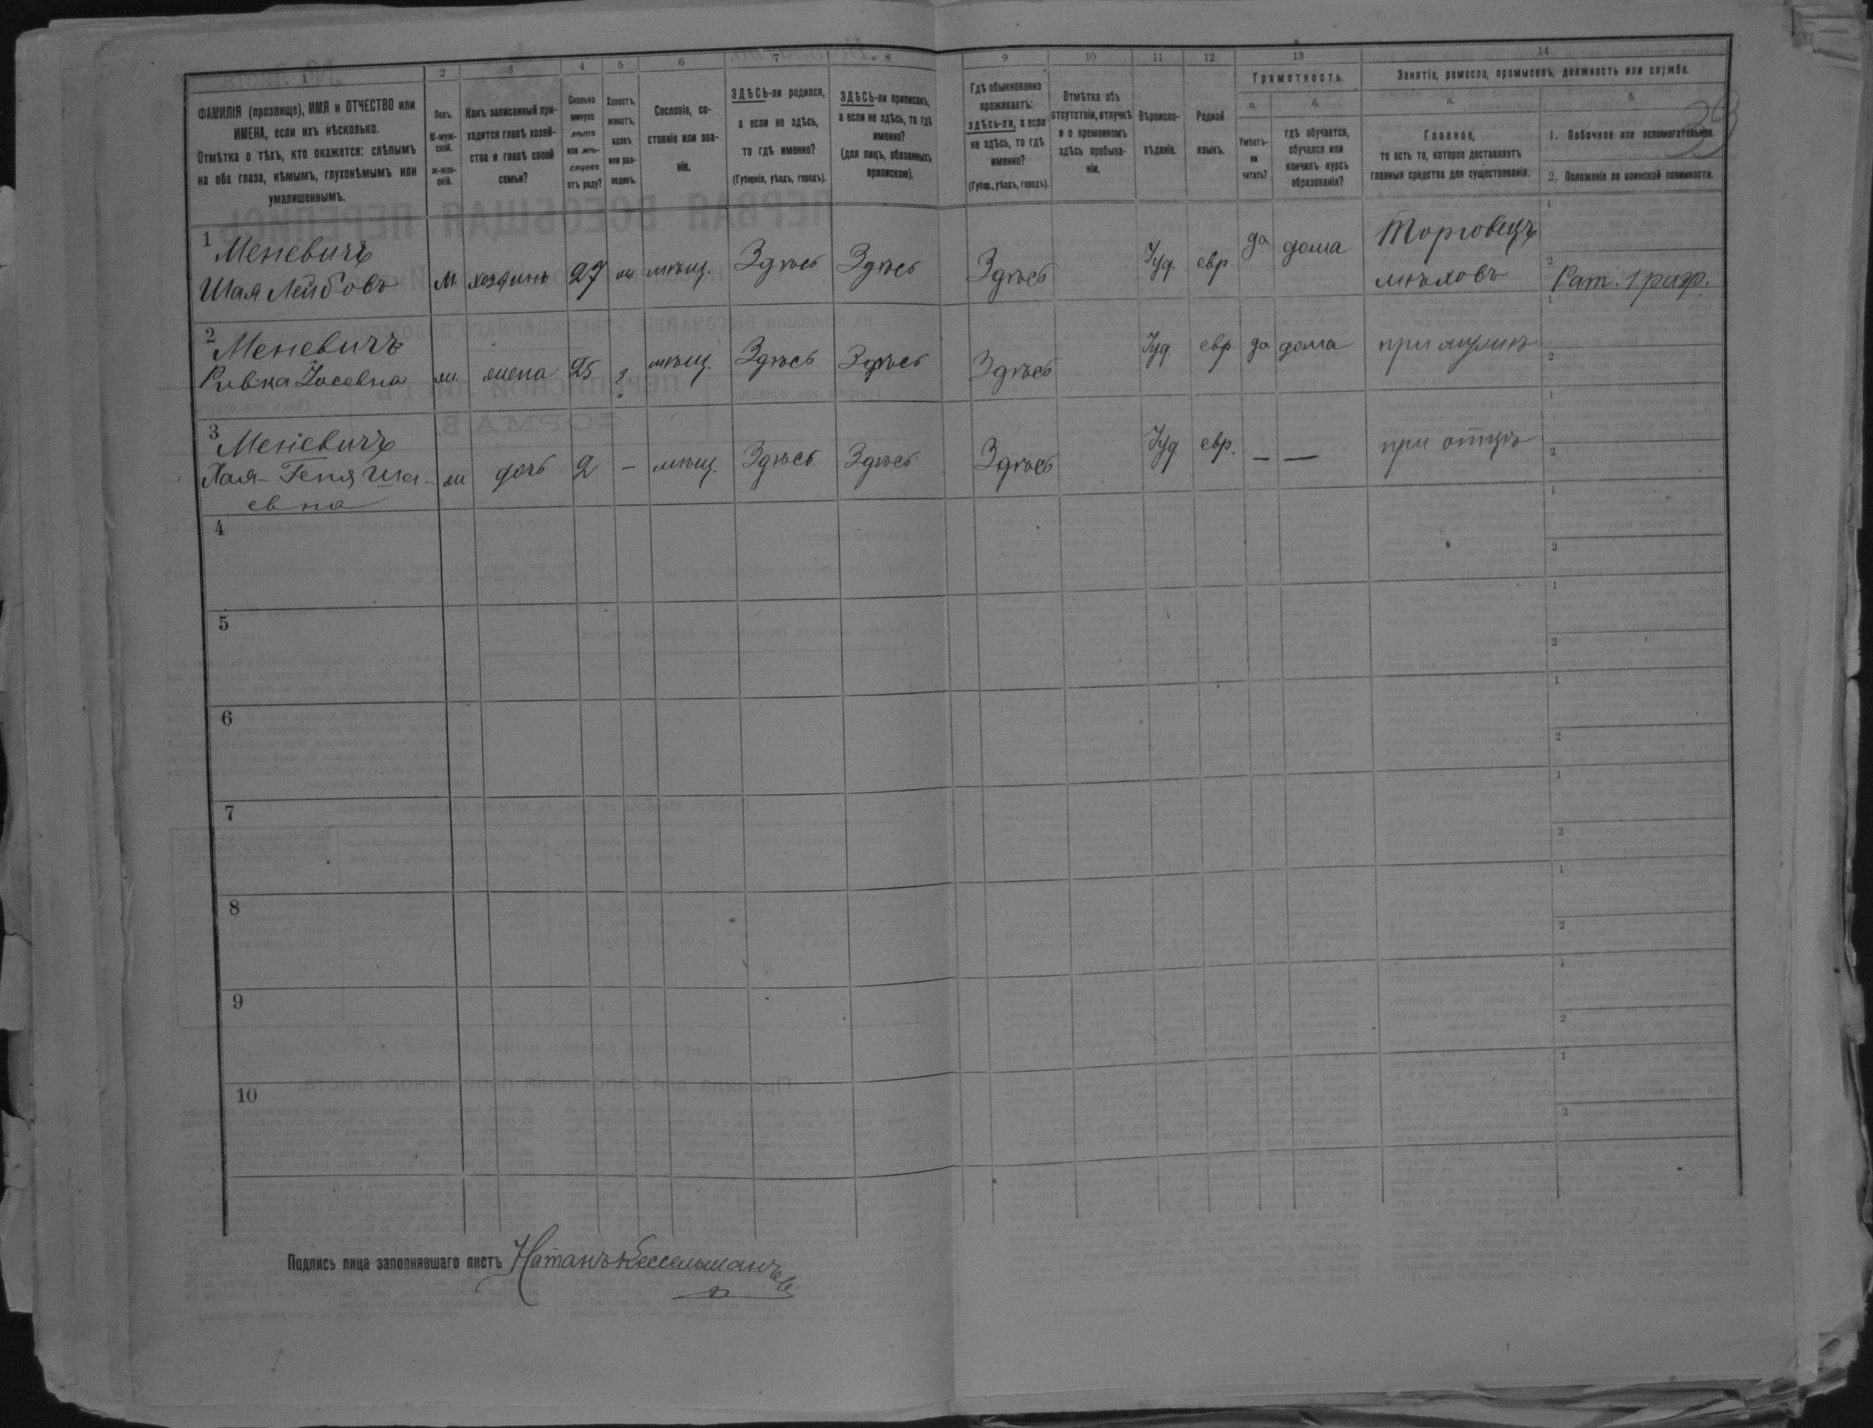 1
ФАМИЛІЯ (прозвище), ИМЯ и ОТЧЕСТВО или
ИМЕНА, если ихъ нѣсколько.
Отмѣтка о тѣхъ, кто окажется: слѣпымъ
на оба глаза, нѣмымъ, глухонѣмымъ или
умалишеннымъ.
2
Полъ.
М-муж-
ской.
Ж-жен-
скій.
3
Какъ записанный при-
ходится главѣ хозяй-
ства и главѣ своей
семьи?
4
Сколько
минуло
лѣтъ
или мѣ-
сяцевъ
отъ роду?
5
Холостъ,
женатъ,
вдовъ
или раз-
веденъ.
6
Сословіе, со-
стояніе или зва-
ніе.
7
ЗДѢСЬ-ли родился,
а если не здѣсь,
то гдѣ именно?
(Губернія, уѣздъ, городъ).
8
ЗДѢСЬ-ли приписанъ,
а если не здѣсь, то гдѣ
именно?
(для лицъ, обязанныхъ
припискою).
9
Гдѣ обыкновенно
проживаетъ:
здѣсь-ли, а если
не здѣсь, то гдѣ
именно?
(Губер., уѣздъ, городъ).
10
Отмѣтка объ
отсутствіи, отлучкѣ
и о временномъ
здѣсь пребыва-
ніи.
11
Вѣроиспо-
вѣданіе.
12
Родной
языкъ.
13
Грамотность.
а.
Умѣетъ-
ли
читать?
б.
гдѣ обучается,
обучался или
кончилъ курсъ
образованія?
14
Занятіе, ремесло, промыселъ, должность или служба.
а.
Главное,
то есть то, которое доставляетъ
главныя средства для существованія.
б.
1. Побочное или вспомогательное.
2. Положеніе по воинской повинности.
1 Меневичъ
Шая Лейбовъ
М. хозяинъ 27 ж мѣщ. Здѣсь Здѣсь Здѣсь Іуд. евр. да дома
Торговецъ
мѣховъ
1
2 Рат. 1 разр.
2 Меневичъ
Ривка Іосевна
ж жена 25 з мѣщ. Здѣсь Здѣсь Здѣсь Іуд. евр. да дома при мужѣ
1
2
3 Меневичъ
Хая-Геня Ша-
евна
ж дочь 2 — мѣщ. Здѣсь Здѣсь Здѣсь Іуд евр. — — при отцѣ
1
2
4
1
2
5
1
2
6
1
2
7
1
2
8
1
2
9
1
2
10
1
2
Подпись лица заполнявшаго листъ Натанъ Кессельманъ